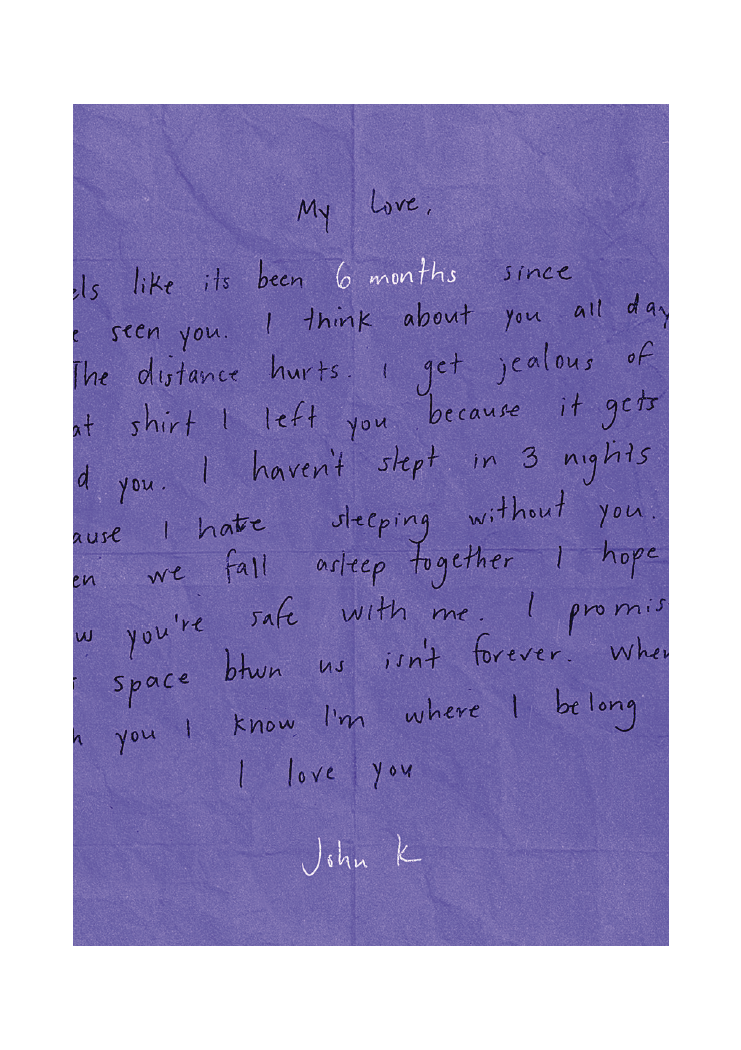 My Love,
els like its been 6 months since
e seen you. I think about you all day
The distance hurts. I get jealous of
at shirt I left you because it gets
d you. I haven't slept in 3 nights
ause I hate sleeping without you.
en we fall asleep together I hope
w you're safe with me. I promis
s space btwn us isn't forever. When
h you I know I'm where I belong
I love you
John K